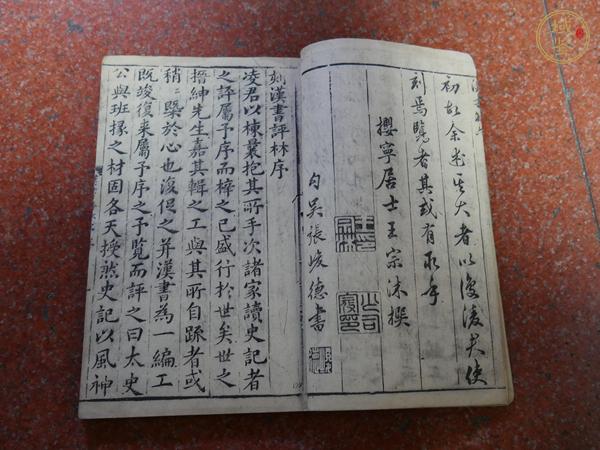 初敘余于其大者以復凌大使
刻焉覽者其或有取乎
攖寧居士王宗沐撰
勾吳張峻德書
刻漢書評林序
凌君以棟裒抱其所手次諸家讀史記者
之評屬予序而梓之已盛行於世矣世之
搢紳先生嘉其輯之工與其所自疏者或
稍稍槩於心也復促之并漢書為一編工
既竣復來屬予序之予覽而評之曰太史
公與班掾之材固各天授然史記以風神